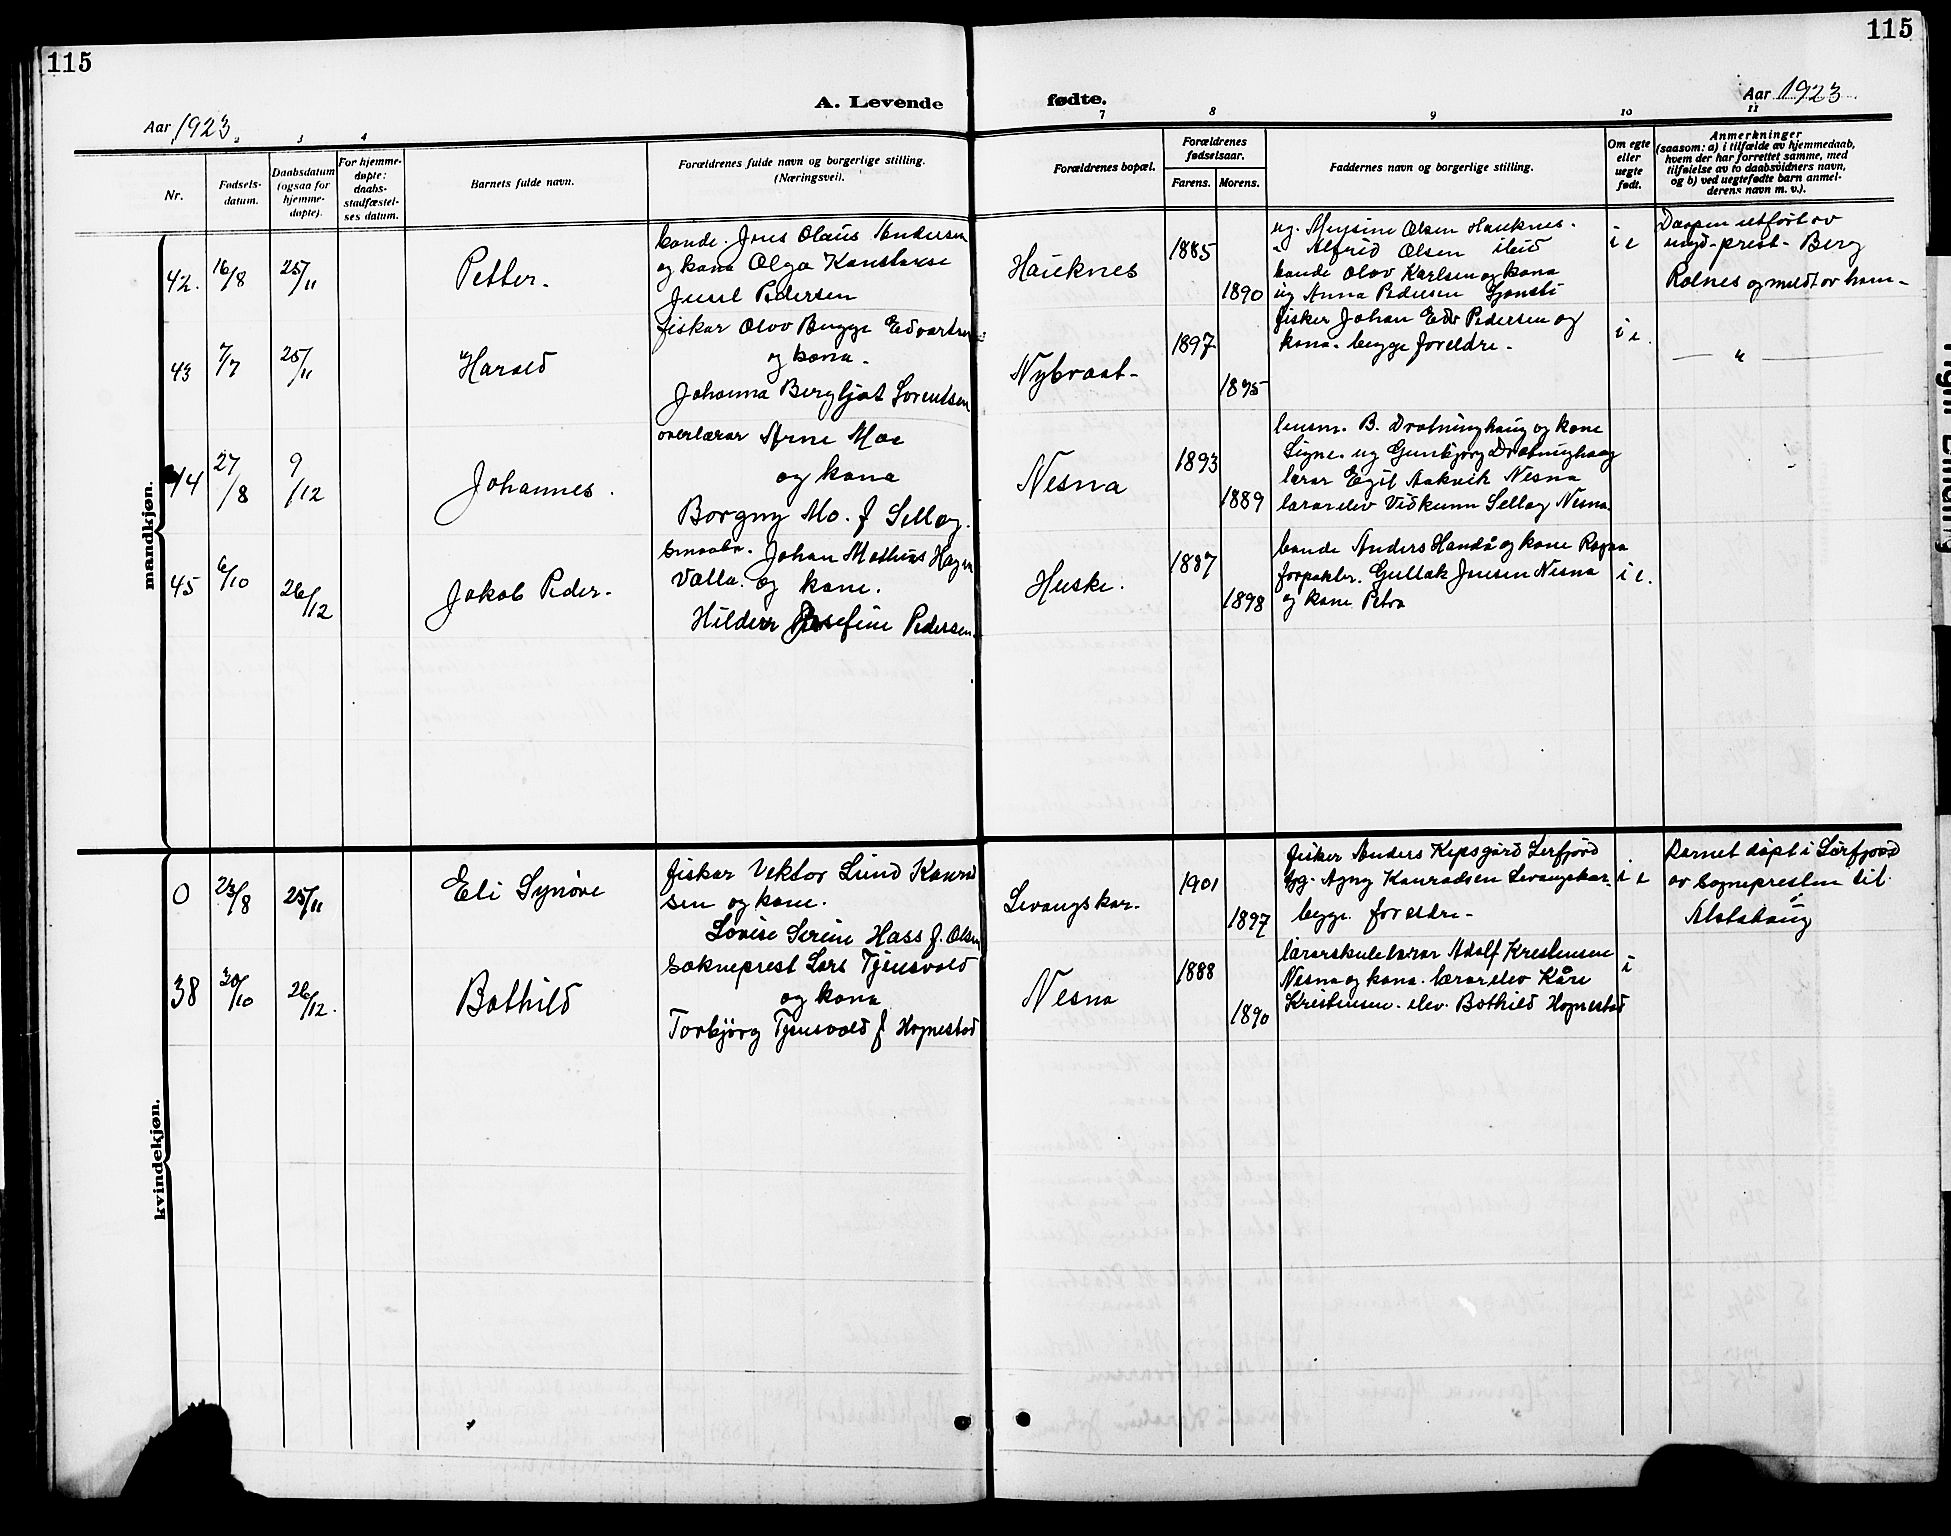 115
115
A. Levende
fødte.
Aar 1923.
Aar 1923.
2
3
4
7
8
9
10
11
Nr.
Fødsels-
datum.
Daabsdatum
(ogsaa for
hjemme-
døpte).
For hjemme-
døpte:
daabs-
stadfæstel-
ses datum.
Barnets fulde navn.
Forældrenes fulde navn og borgerlige stilling.
(Næringsvei).
Forældrenes bopæl.
Forældrenes
fødselsaar.
Farens.
Morens.
Faddernes navn og borgerlige stilling.
Om egte
eller
uegte
født.
Anmerkninger
(saasom: a) i tilfælde av hjemmedaab,
hvem der har forrettet samme, med
tilføielse av to daabsvidners navn,
og b) ved uegtefødte barn anmel-
derens navn m. v.).
mandkjøn.
42.
16/8
25/11
Petter.
bonde. Jens Olaus Andersen
og kona Olga Konstanse
Juul Pedersen
Hauknes
1885
1890
ug. Mensine Olsen Hauknes.
" Alfrid Olsen ibid
bonde Olav Karlsen og kona
ug Anna Pedersen
i e
Daapen utført av
ungd-prest- Berg
Rølnes og meldt av ham-
43
7/7
25/11
Harald
fiskar Olav Bugge Edvartsen
og kona.
Johanna Bergljot Sorentsen
Nybraat-
1897
1895
fisker Johan Edv Pedersen og
kona. begge foreldre.
i e.
— " —
44
27/8
9/12
Johannes.
overlærar Arne Moe
og kona
Borgny Mo. f Selløg.
Nesna
1893
1889
lensm. B. Drotninghaug og kone
Signe. ug Gunbjørg Drotninghaug
lærar Egil Aakvik Nesna
lærarelev Vidkunn Selløg Nesna.
45
6/10
26/12
Jakob Peder.
smaabr. Johan Mathias Hagen
Valla. og kone.
Hilder Josefine Pedersen.
Huske.
1887
1898
bonde Anders Handå og kone Ragna
forpakter. Gullak Jensen Nesna
og kone Petra
i e.
kvindekjøn.
0
23/8
25/11
Eli Synøve
fiskar Vektor Lund Konrad
sen og kone.
Lovise Serine Hass f. Olsen
Levangskar.
1901
1897
fisker Anders Kipsgård Lerfjord
Gg. Agny Konradsen Levangskar-
begge foreldre-
i e
Barnet døpt i Sørfjord
av Sognepresten til
Alstahaug
38
30/10
26/12.
Bothild
Sokneprest Lars Tjensvold
og kona
Torbjørg Tjensvold f Hognestad
Nesna
1888
1890
lærarskulelærar Adolf Kristensen
Nesna og kona. lærarelev Kåre
Kristensen. elev. Bothild Hognestad
i